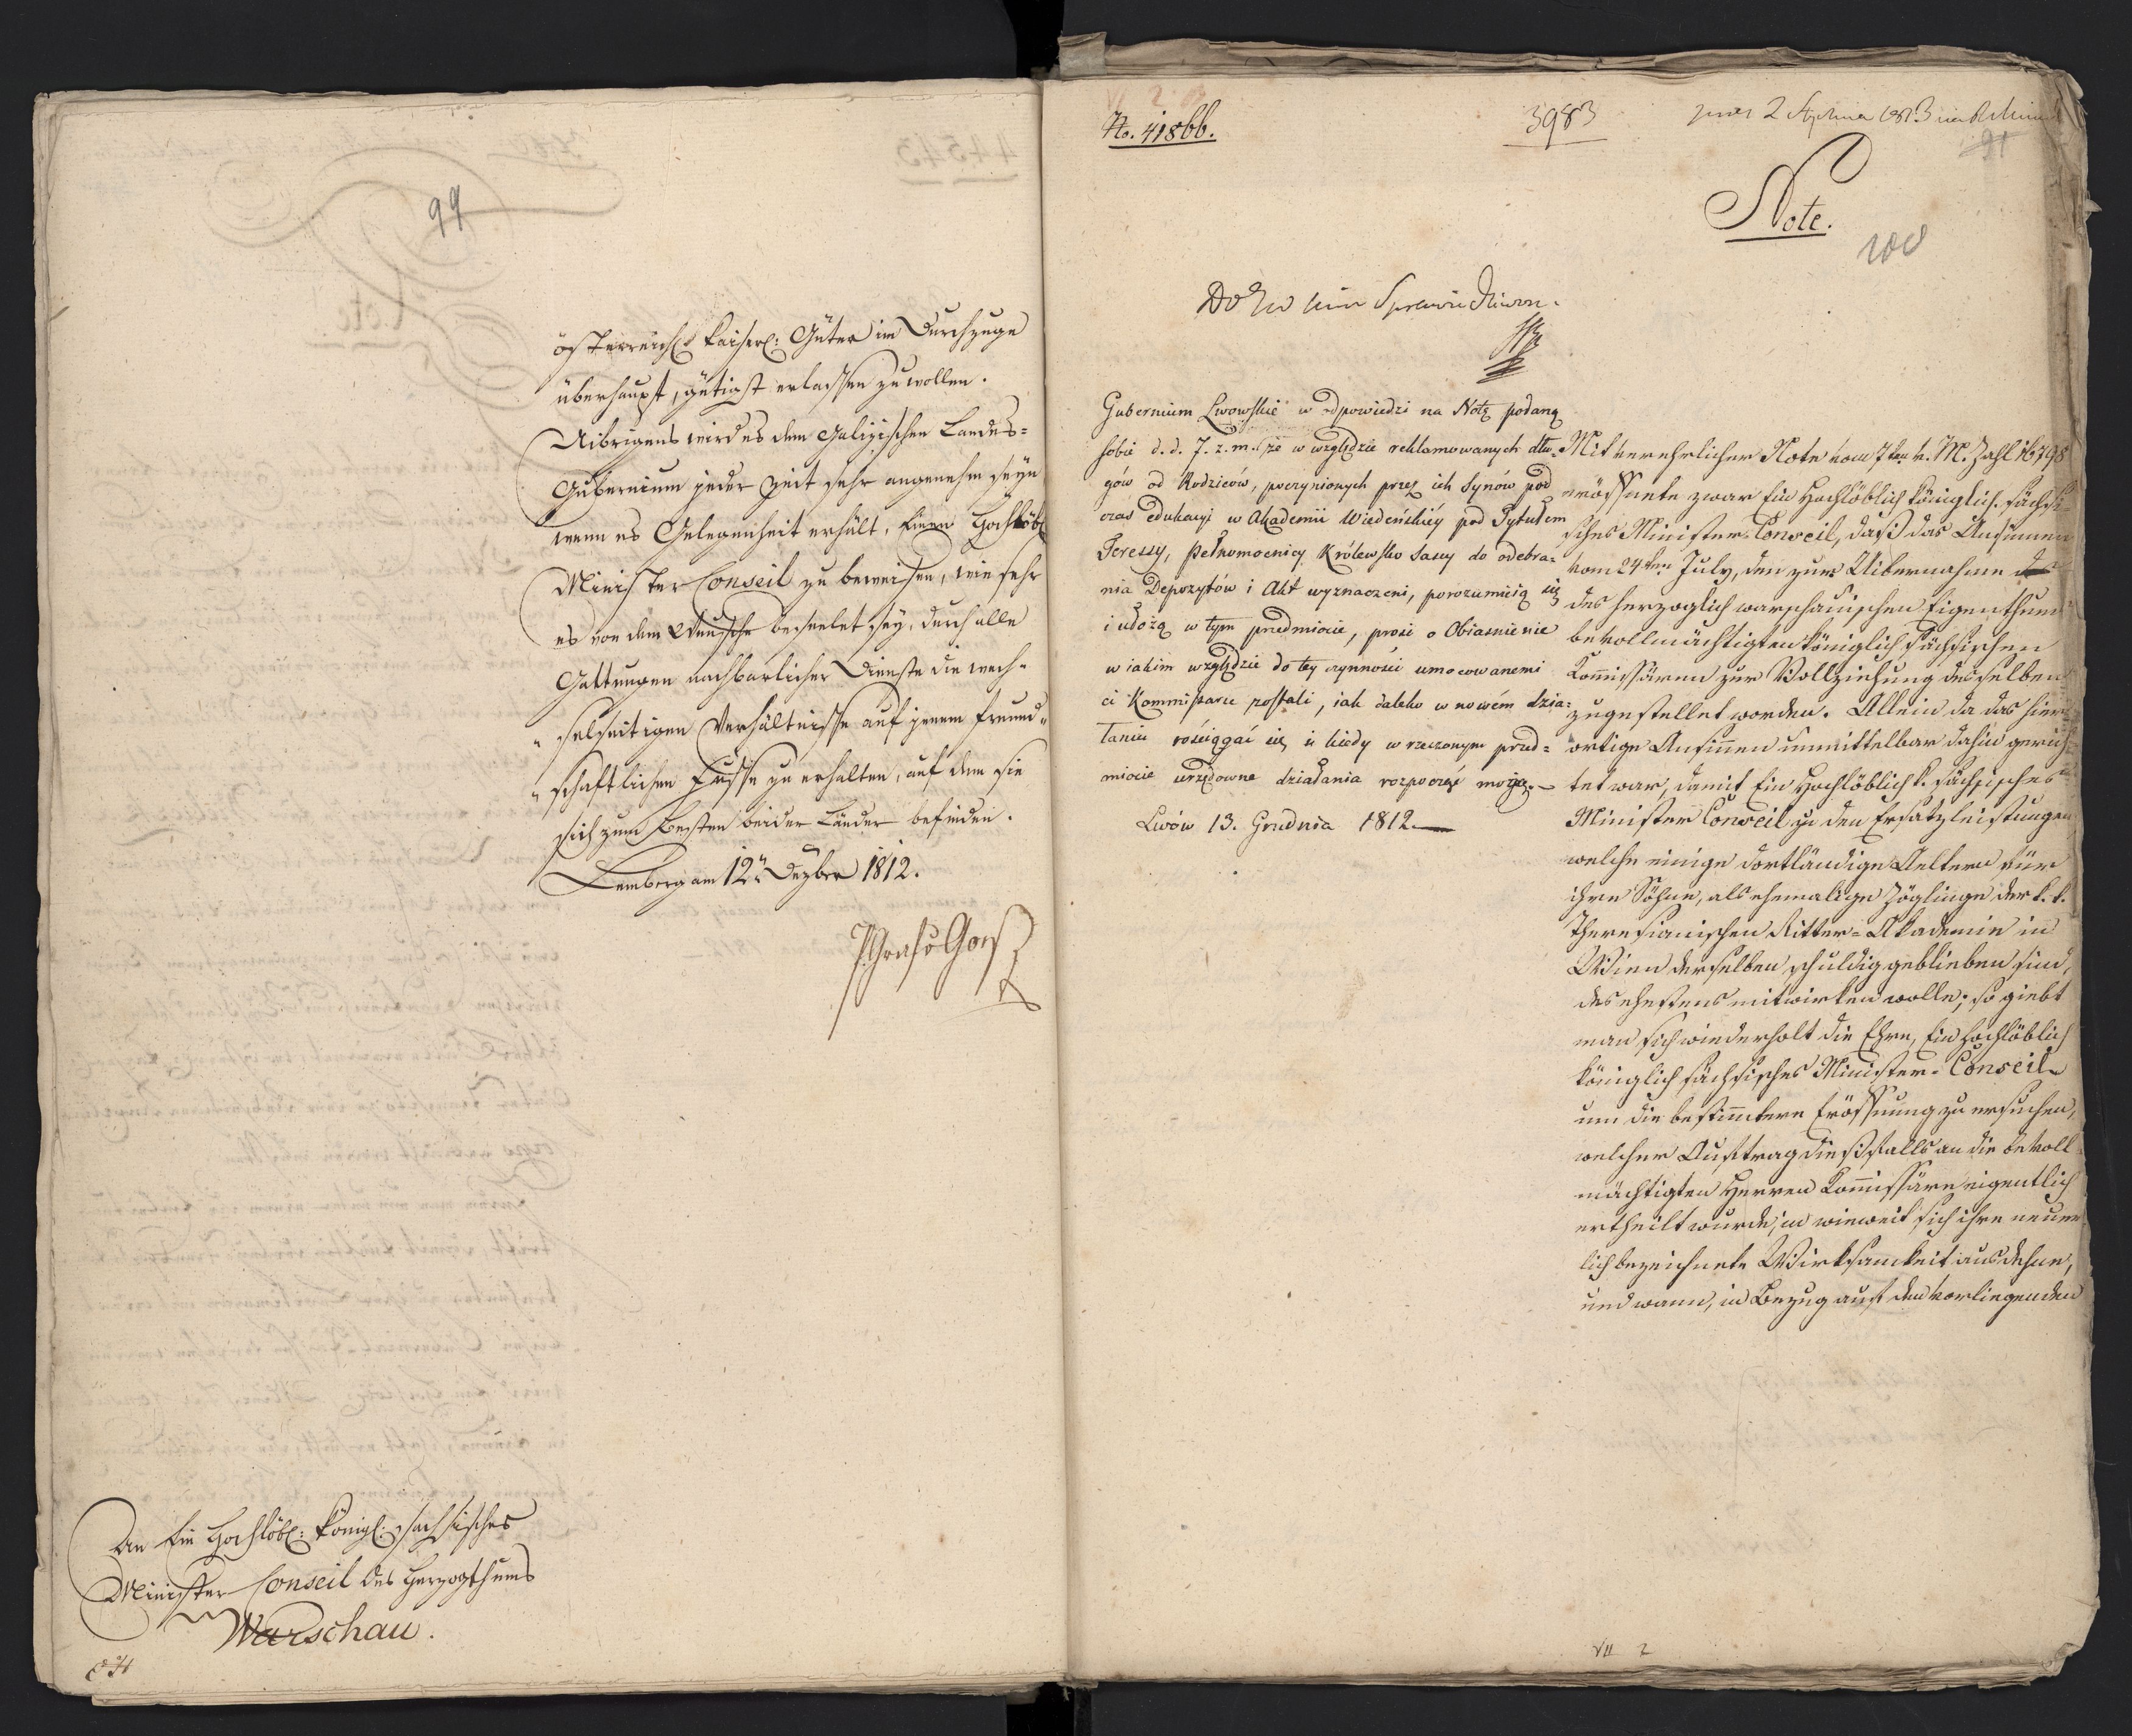 99
österreich. kaiserl: Güter im Durchzuge
überhaupt, gütigst erlassen zu wollen.
Uibrigens wird es dem Galizischen Landes=
Gubernium jeder Zeit sehr angenehm seyn
wenn es Gelegenheit erhält, Einem Hochlöbl
Minister Conseil zu beweisen, wie sehr
es von dem Wunsche beseelet sey, durch alle
Gattungen nachbarlicher Dienste die wech=
selseitigen Verhältnisse auf jenem freund=
schaftlichen Fusse zu erhalten, auf dem sie
sich zum Besten beider Länder befinden.
Lemberg am 12n Dezber 1812.
An Ein Hochlöbl: königl: sächsisches
Minister Conseil des Herzogthums
Warschau.
No. 41866.
3983
2 Stycznia 1813
91
Note.
100
Do Sprawiedliwon.
Gubernium Lwowskie w odpowiedzi na Notę podaną
sobie d. d. 7. z. m. że w względzie reklamowanych dłu=
gów od Rodziców, poczynionych przez ich Synów pod
czas edukacyi w Akademii Wiedeńskiéy pod Tytułem
Teressy, Pełnomocnicy Królewsko Sascy do odebra=
nia Depozytów i Akt wyznaczeni, porozumieią się
i ułożą w tym przedmiocie, prosi o Obiasnienie
w iakim względzie do tey czynności umocowanemi
ci Kommissarze zostali, iak daleko w nowém dzia=
łaniu rościągać się i kiedy w rzeczonym przed=
miocie urzędowne działania rozpocząć mogą.
Lwów 13. Grudnia 1812.
Mit verehrlicher Note vom 7ten v. M. Zahl 16798
eröffnete zwar Ein Hochlöblich königlich-sächsi=
sches Minister-Conseil, daß das Ansinnen
vom 24ten July, den zur Uibernahme
des herzoglich warschauischen Eigenthums
bevollmächtigten königlich sächsischen
Kommissären zur Vollziehung desselben
zugestellet worden. Allein da das hier=
ortige Ansinnen unmittelbar dahin gerich=
tet war, damit Ein Hochlöblich k. sächsisches
Minister Conseil zu den Ersatzleistungen
welche einige dortländige Aeltern für
ihre Söhne, als ehemalige Zöglinge der k. k.
Theresianischen Ritter=Akademie in
Wien derselben schuldig geblieben sind,
des ehestens mitwirken wolle; so giebt
man sich wiederholt die Ehre, Ein Hochlöblich
königlich sächsisches Minister-Conseil
um die bestimmtere Eröffnung zu ersuchen,
welcher Auftrag dießfalls an die bevoll=
mächtigten Herren Kommissäre eigentlich
ertheilt wurde, in wieweit sich ihre neuer
lich bezeichnete Wirksamkeit ausdehne,
und wann, in Bezug auf den vorliegenden
VII 2